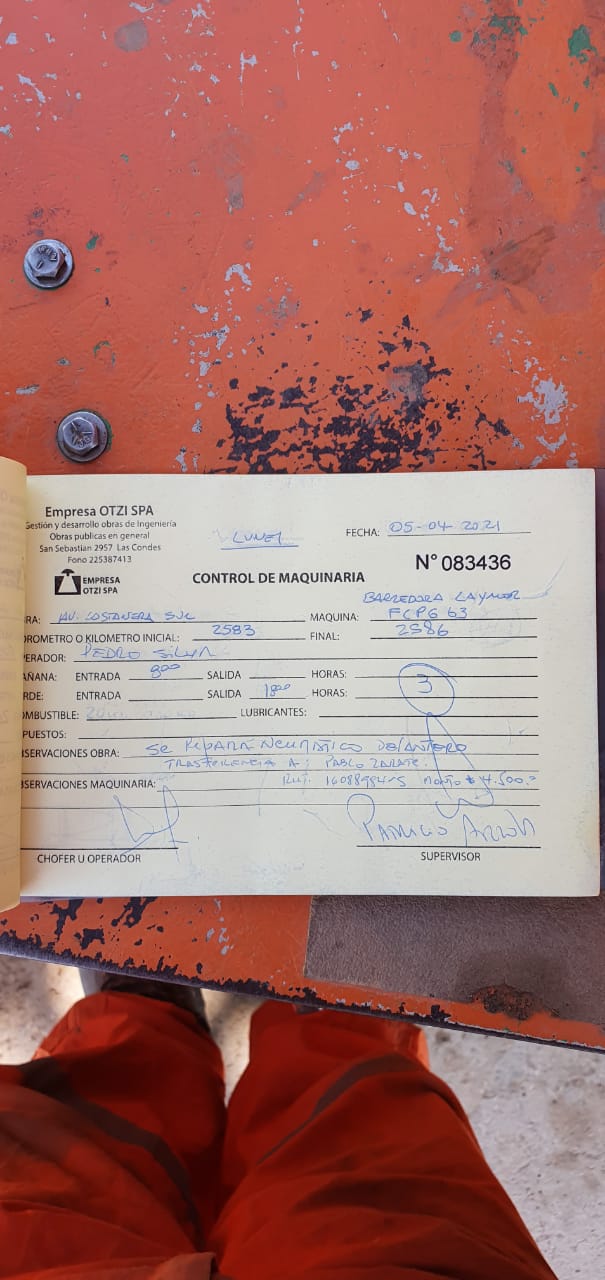 Empresa OTZI SPA
Gestión y desarrollo obras de Ingeniería
Obras publicas en general
San Sebastian 2957 Las Condes
Fono 225387413
EMPRESA
OTZI SPA
LUNES
FECHA: 05-04-2021
N° 083436
CONTROL DE MAQUINARIA
BARREDORA LAYMOR
RA: AV. COSTANERA SUR MAQUINA: FCPG 63
OROMETRO O KILOMETRO INICIAL: 2583 FINAL: 2586
ERADOR: PEDRO SILVA
AÑANA: ENTRADA 8:00 SALIDA HORAS:
RDE: ENTRADA SALIDA 18:00 HORAS: 3
OMBUSTIBLE: LUBRICANTES:
PUESTOS:
SERVACIONES OBRA: SE REPARA NEUMÁTICO DELANTERO
TRASFERENCIA A: PABLO ZARATE.
SERVACIONES MAQUINARIA: RUT. MONTO $ 4.500.-
PATRICIO
CHOFER U OPERADOR SUPERVISOR